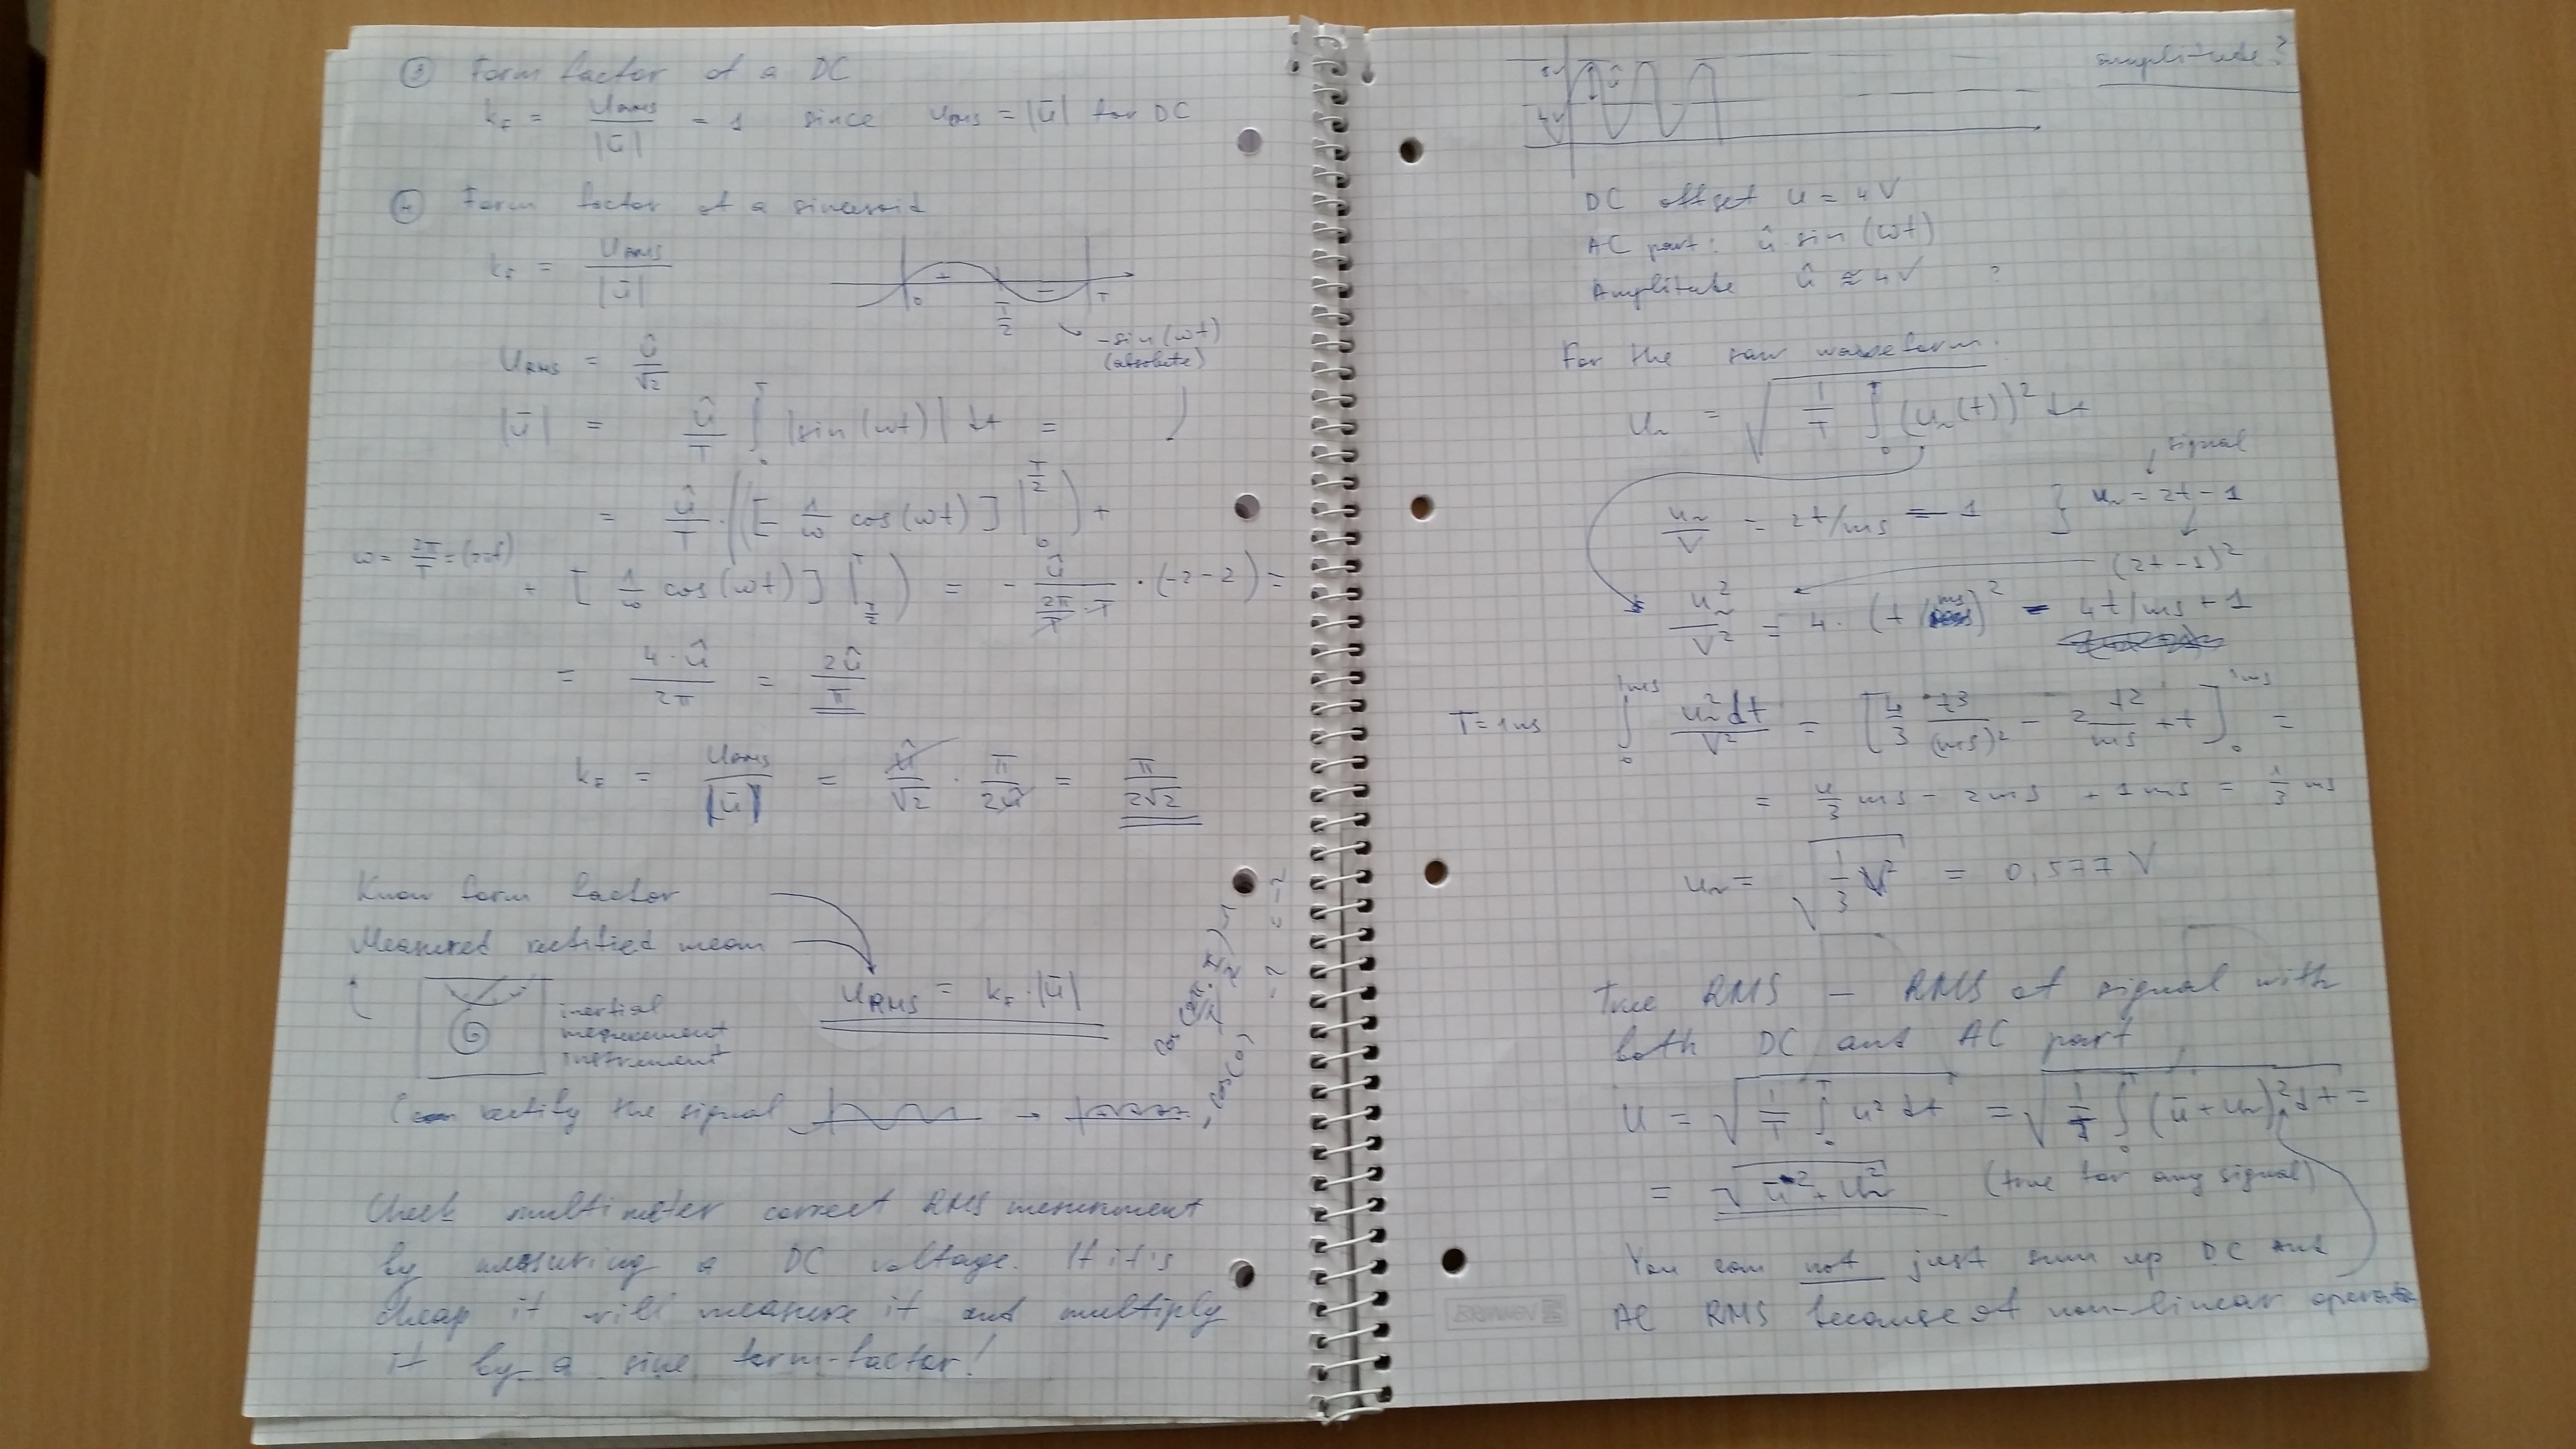 ③ Form factor of a DC
k_F = U_RMS / |ū| = 1 since U_RMS = |ū| for DC
④ Form factor of a sinusoid
k_F = U_RMS / |ū|
+ − 0 T/2 T
-sin(ωt)
(absolute)
U_RMS = û / √2
|ū| = û/T ∫₀ᵀ |sin(ωt)| dt =
= û/T · ([- 1/ω cos(ωt)] |₀^{T/2}) +
ω = 2π/T = (2πf)
+ [1/ω cos(ωt)] |_{T/2}^T) = - û / (2π/T · T) · (-2-2) =
= 4·û / 2π = 2û / π
k_F = U_RMS / |ū| = û/√2 · π/2û = π / 2√2
Know form factor
Measured rectified mean
U_RMS = k_F · |ū|
G
inertial
measurement
instrument
rectify the signal →
Check multimeter correct RMS mesurement
by measuring a DC voltage. If it's
cheap it will measure it and multiply
it by a sine form-factor!
amplitude?
û
4V
DC offset u = 4V
AC part: û sin (ωt)
Amplitude û ≈ 4V ?
For the saw waveform:
U~ = √(1/T ∫₀ᵀ (u~(t))² dt
signal
u~/V = 2t/ms - 1 } u~ = 2t - 1
(2t - 1)²
u~²/V² = 4 · (t/ms)² - 4t/ms + 1
T = 1ms ∫₀^{1ms} u~² dt / V² = [4/3 t³/(ms)² - 2 t²/ms + t]₀^{1ms} =
= 4/3 ms - 2ms + 1ms = 1/3 ms
U~ = √(1/3 V²) = 0,577 V
True RMS - RMS of signal with
both DC and AC part
U = √(1/T ∫₀ᵀ u² dt) = √(1/T ∫₀ᵀ (ū + u~)² dt) =
= √(ū² + U~²) (true for any signal)
You can not just sum up DC and
AC RMS because of non-linear operation